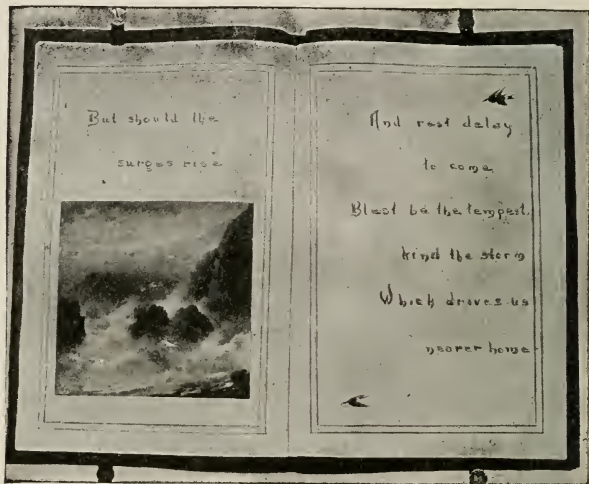 But should the
surges rise
And rest delay
to come,
Blest be the tempest,
kind the storm
Which drives us
nearer home